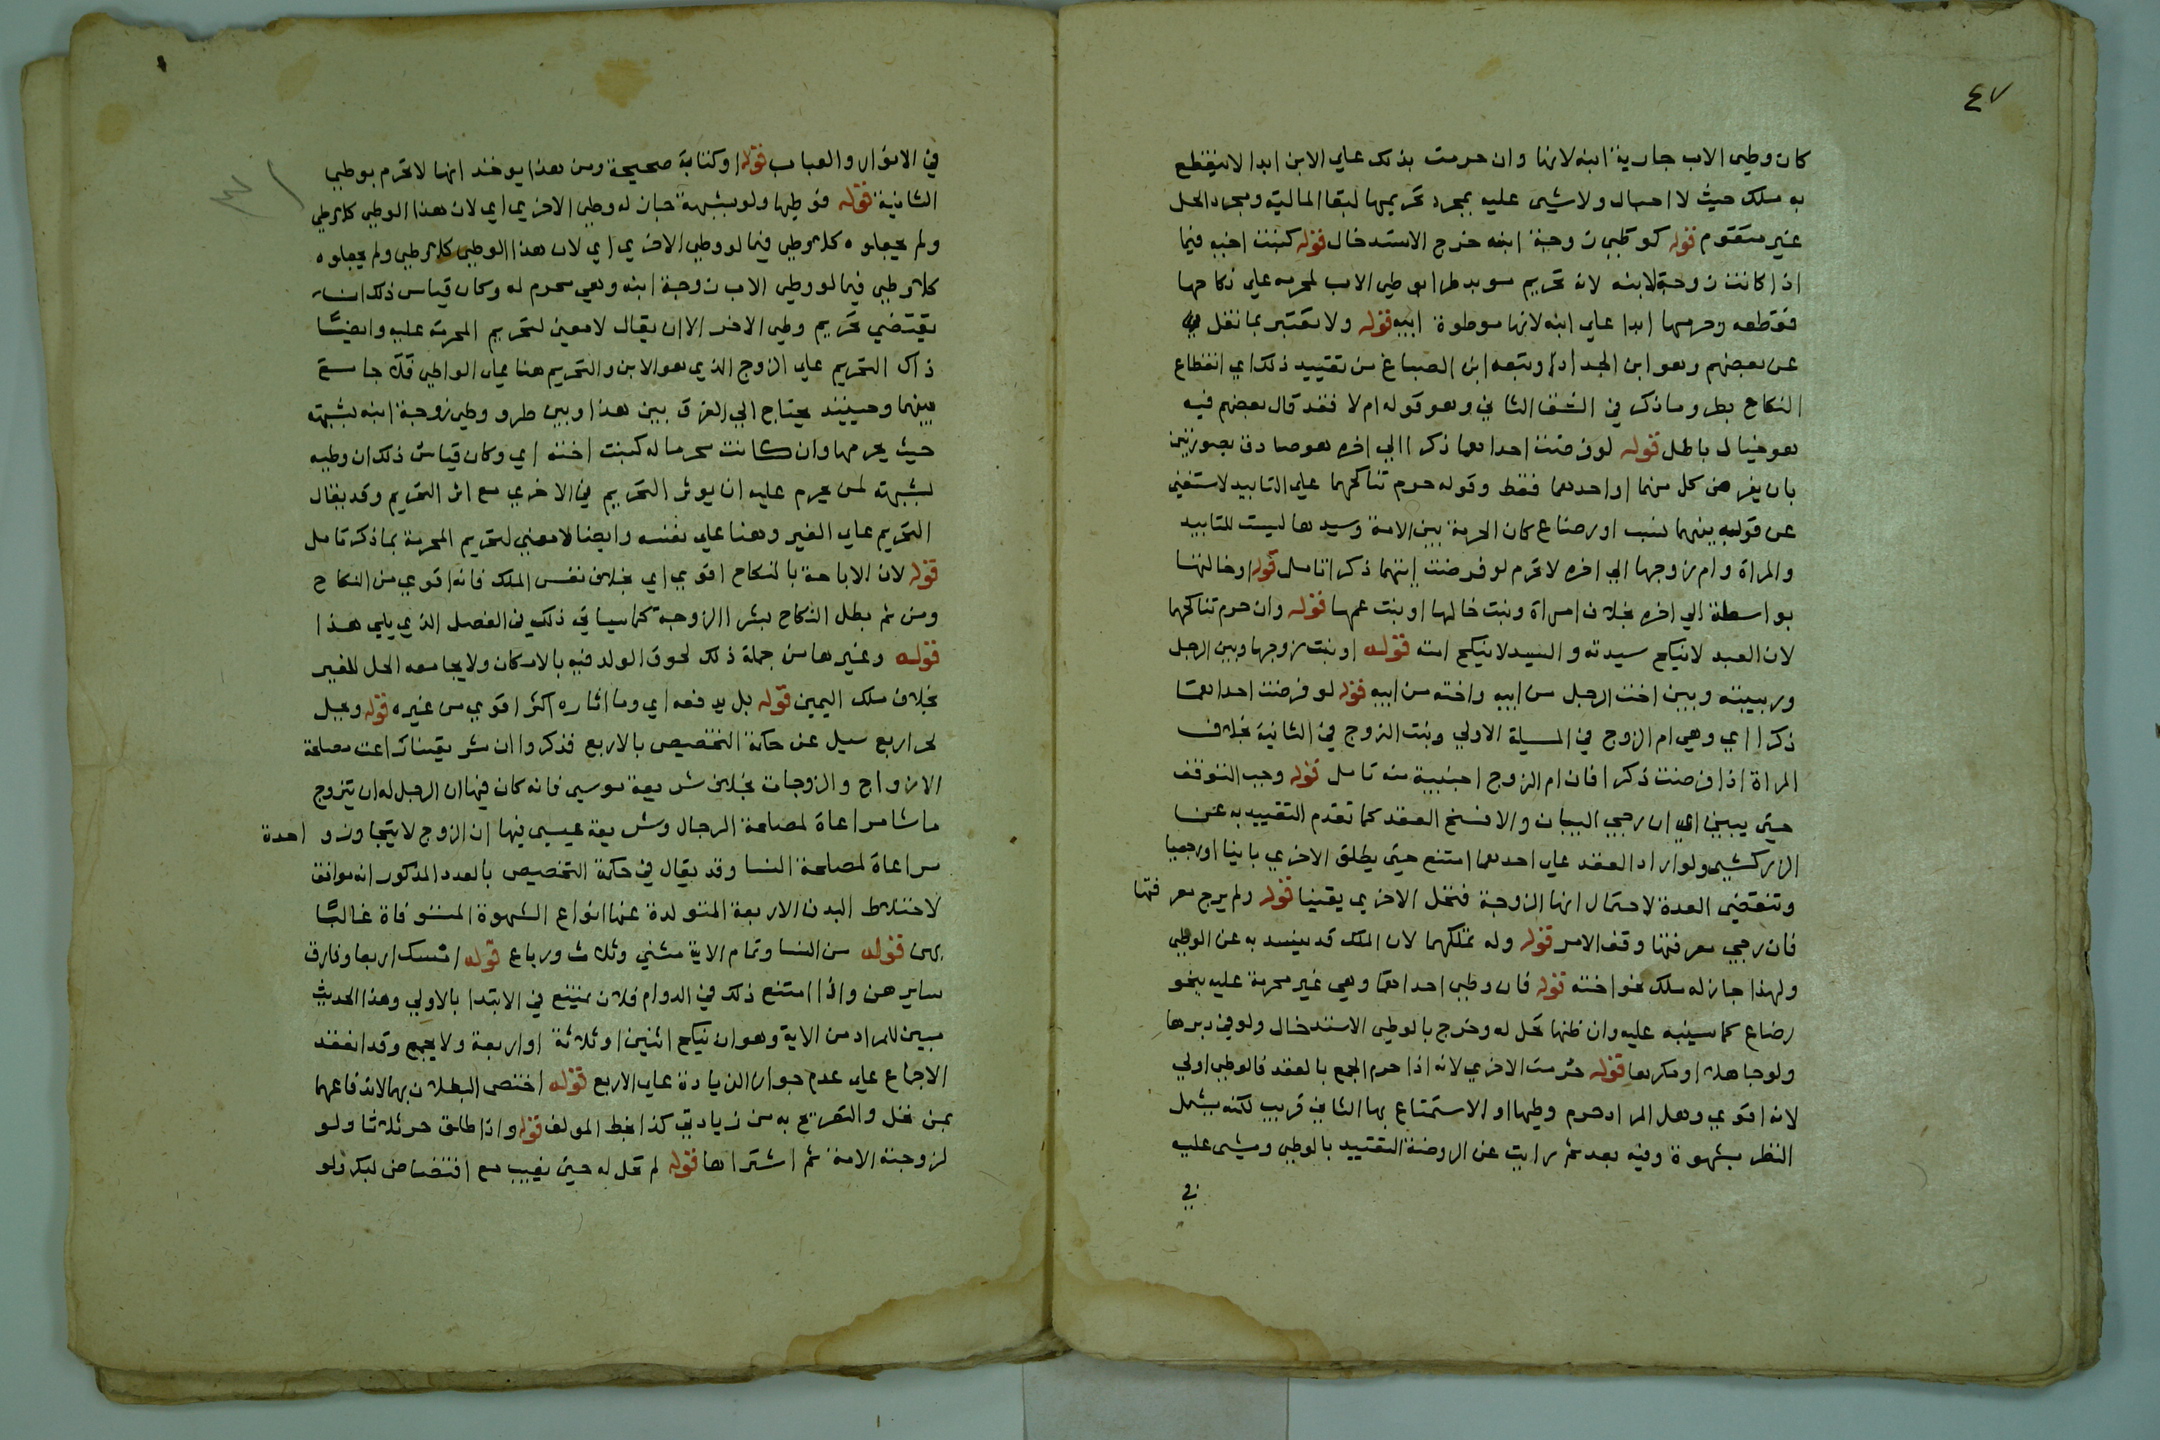 ٤٧
كان وطي الاب جارية ابنه لانها وان حرمت بذلك علي الابن ابدا لا ينقطع
به ملك حيث لا احبال ولا شي عليه بمجرد تحريمها لبقا المالية ومجرد الحل
غير متقوم قوله كوطي زوجة ابنه خرج الاستدخال قوله كبنت اخيه فيما
اذا كانت زوجة لابنه لانه تحريم موبد طرا بوطي الاب لمحرمه علي نكاحها
فقطعه وحرمها ابدا علي ابنه لانها موطوة ابيه قوله ولا يعتبر بما نقل
عن بعضهم وهو ابن الحداد وتبعه ابن الصباغ من تقييد ذلك اي انقطاع
النكاح بطروما ذكر في الشق الثاني وهو قوله ام لا فقد قال بعضهم فيه
هو خيال باطل قوله لو فرضت احداهما ذكرا الي اخره هو صادق بصورتين
بان يفرض كل منهما او احدهما فقط وقوله حرم تناكحهما علي التابيد لاستغني
عن قوله بينهما نسب او رضاع كان الحرمة بين الامة وسيدها ليست للتابيد
والمراة وام زوجها الي اخره لا تحرم لو فرضت اينهما ذكرا تامل قوله او خالتها
بواسطة الي اخره بخلاف امراة وبنت خالها او بنت عمها قوله وان حرم تناكحهما
لان العبد لا ينكح سيدته والسيد لا ينكح امته قوله او بنت زوجها وبين الرجل
وربيبته وبين اخت الرجل من ابيه واخته من ابيه قوله لو فرضت احداهما
ذكرا اي وهي ام الزوج في المسيلة الاولي وبنت الزوج في الثانية بخلاف
المراة اذا فرضت ذكرا فان ام الزوج اجنبية منه تامل قوله وجب التوقف
حتي يبين اي ان رجي البيان والا فسخ العقد كما تقدم التقييد به عن
الزركشي ولو اراد العقد علي احدهما امتنع حتي يطلق الاخري باينا او رجعيا
وتنقضي العدة لاحتمال انها الزوجة فتحل الاخري يقينا قوله ولم يرج معرفتها
فان رجي معرفتها وقف الامر قوله وله تملكهما لان الملك قد يقصد به غير الوطي
ولهذا جاز له ملك نحو اخته قوله فان وطي احداهما وهي غير محرمة عليه بنحو
رضاع كما سينبه عليه وان ظنها تحل له وخرج بالوطي الاستدخال ولو في دبرها
ولو جاهلا او مكرها قوله حرمت الاخري لانه اذا حرم الجمع بالعقد فالوطي اولي
لانه اقوي وهل المراد حرم وطيها او الاستمتاع بها الثاني قريب لكنه يشمل
النظر بشهوة وفيه بعد ثم رايت عن الروضة التقييد بالوطي ومشي عليه
في
في الانوار والعباب قوله او كتابة صحيحة ومن هذا يوخذ انها لا تحرم بوطي
الثانية قوله فوطيها ولو بشبهة جاز له وطي الاخري اي لان هذا الوطي كلا وطي
ولم يجعلوه كلا وطي فيما لو وطي الاخري اي لان هذا الوطي كلا وطي ولم يجعلوه
كلا وطي فيما لو وطي الاب زوجة ابنه وهي محرم له وكان قياس ذلك ان
يقتضي تحريم وطي الاخر الا ان يقال لا معني لتحريم المحرمة عليه وايضا
ذاك التحريم علي الزوج الذي هو الابن والتحريم هنا علي الواطي فلا جامع
بينهما وحينئذ يحتاج الي الفرق بين هذا وبين طرو وطي زوجة ابنه بشبهة
حيث يحرمها وان كانت محرما له كبنت اخته اي وكان قياس ذلك ان وطيه
بشبهة لمن يحرم عليه ان يوثر التحريم في الاخري مع اثر التحريم وقد يقال
التحريم علي الغير وهنا علي نفسه وايضا لا معني لتحريم المحرمة بما ذكر تامل
قوله لان الاباحة بالنكاح اقوي اي بخلاف نفس الملك فانه اقوي من النكاح
ومن ثم بطل النكاح بشرا الزوجة كما سياتي ذلك في الفصل الذي يلي هذا
قوله وغيرها من جملة ذلك لحوق الولد فيه بالامكان ولا يجامعه الحل للغير
بخلاف ملك اليمين قوله بل يدفعه اي وما اثاره اكثر اقوي من غيره قوله ويحل
لحر اربع سيل عن حكمة التخصيص بالاربع فذكروا ان شريعتنا راعت مصلحة
الازواج والزوجات بخلاف شريعة موسي فانه كان فيها ان الرجل له ان يتزوج
ما شا مراعاة لمصلحة الرجال وشريعة عيسي فيها ان الزوج لا يتجاوز واحدة
مراعاة لمصلحة النسا وقد يقال في حكمة التخصيص بالعدد المذكور انه موافق
لاختلاط البدن الاربعة المتولدة عنها انواع الشهوة المستوفاة غالبا
بهن قوله من النسا وتمام الاية مثني وثلاث ورباع قوله امسك اربعا وفارق
سايرهن واذا امتنع ذلك في الدوام فلان يمتنع في الابتدا بالاولي وهذا الحديث
مبين للمراد من الاية وهو ان ينكح اثنين او ثلاثة او اربعة ولا يجمع وقد انعقد
الاجماع علي عدم جواز الزيادة علي الاربع قوله اختص البطلان بهما لاندفاعهما
بمن تحل والتصريح به من زيادتي كذا بخط المولف قوله واذا طلق حر ثلاثا ولو
لزوجته الامة ثم اشتراها قوله لم تحل له حتي يغيب مع افتضاض لبكر ولو